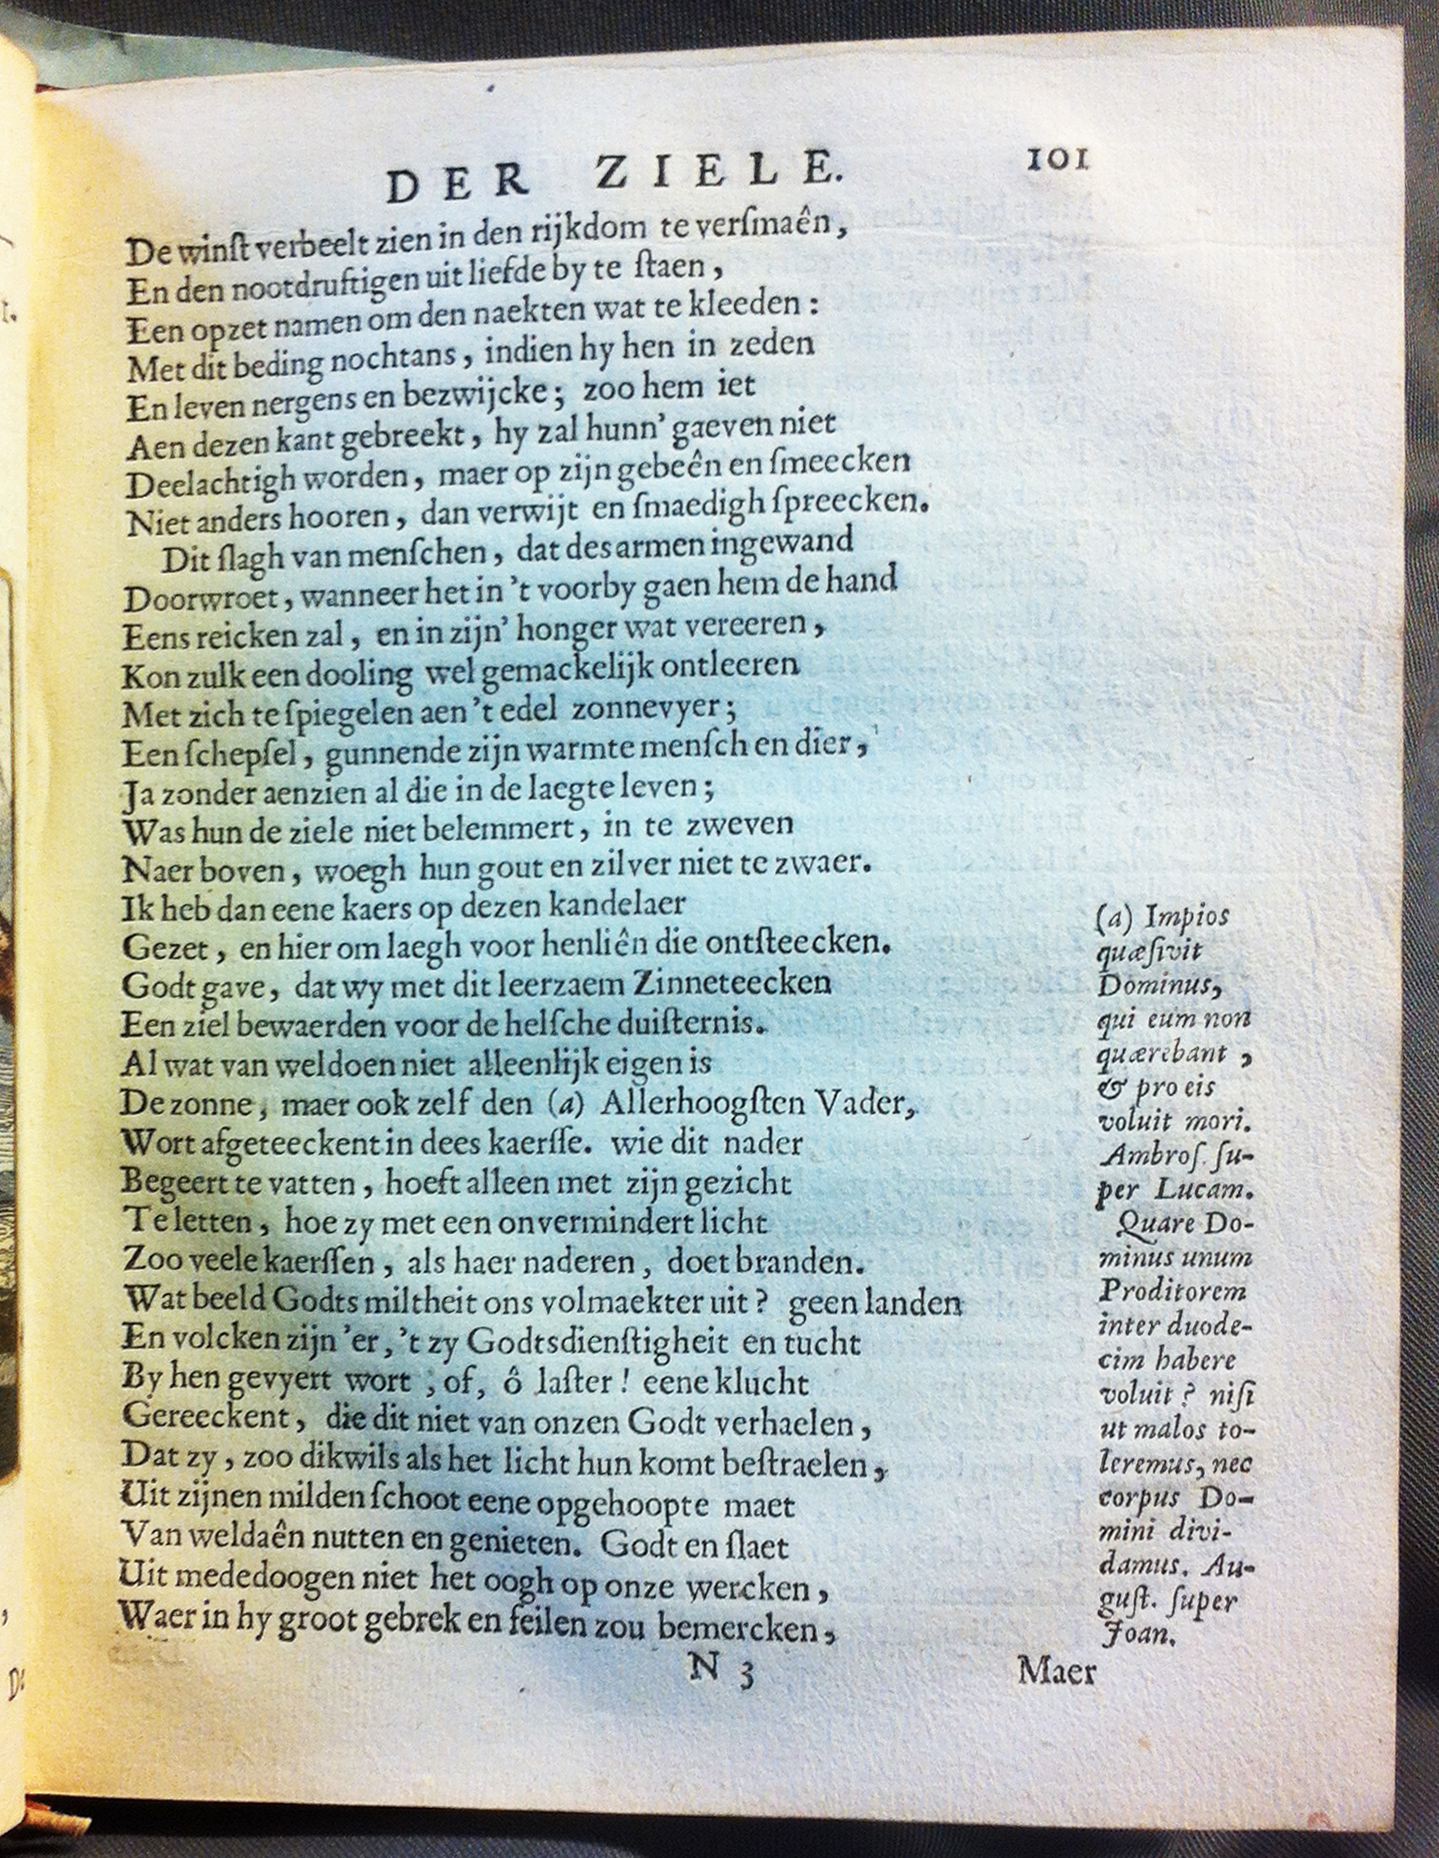 DER ZIELE. 101
De winſt verbeelt zien in den rijkdom te verſmaên,
En den nootdruftigen uit liefde by te ſtaen,
Een opzet namen om den naekten wat te kleeden:
Met dit beding nochtans, indien hy hen in zeden
En leven nergens en bezwijcke; zoo hem iet
Aen dezen kant gebreekt, hy zal hunn' gaeven niet
Deelachtigh worden, maer op zijn gebeên en ſmeecken
Niet anders hooren, dan verwijt en ſmaedigh ſpreecken.
Dit ſlagh van menſchen, dat des armen ingewand
Doorwroet, wanneer het in 't voorby gaen hem de hand
Eens reicken zal, en in zijn' honger wat vereeren,
Kon zulk een dooling wel gemackelijk ontleeren
Met zich te ſpiegelen aen 't edel zonnevyer;
Een ſchepſel, gunnende zijn warmte menſch en dier,
Ja zonder aenzien al die in de laegte leven;
Was hun de ziele niet belemmert, in te zweven
Naer boven, woegh hun gout en zilver niet te zwaer.
Ik heb dan eene kaers op dezen kandelaer
Gezet, en hier om laegh voor henliên die ontſteecken.
Godt gave, dat wy met dit leerzaem Zinneteecken
Een ziel bewaerden voor de helſche duiſternis.
Al wat van weldoen niet alleenlijk eigen is
De zonne, maer ook zelf den (a) Allerhoogſten Vader,
Wort afgeteeckent in dees kaerſſe. wie dit nader
Begeert te vatten, hoeft alleen met zijn gezicht
Te letten, hoe zy met een onvermindert licht
Zoo veele kaerſſen, als haer naderen, doet branden.
Wat beeld Godts miltheit ons volmaekter uit? geen landen
En volcken zijn 'er, 't zy Godtsdienſtigheit en tucht
By hen gevyert wort, of, ô laſter! eene klucht
Gereeckent, die dit niet van onzen Godt verhaelen,
Dat zy, zoo dikwils als het licht hun komt beſtraelen,
Uit zijnen milden ſchoot eene opgehoopte maet
Van weldaên nutten en genieten. Godt en ſlaet
Uit mededoogen niet het oogh op onze wercken,
Waer in hy groot gebrek en feilen zou bemercken,
N 3 Maer
(a) Impios
quæſivit
Dominus,
qui eum non
quærebant,
& pro eis
voluit mori.
Ambroſ. ſu-
per Lucam.
Quare Do-
minus unum
Proditorem
inter duode-
cim habere
voluit? niſi
ut malos to-
leremus, nec
corpus Do-
mini divi-
damus. Au-
guſt. ſuper
Joan.